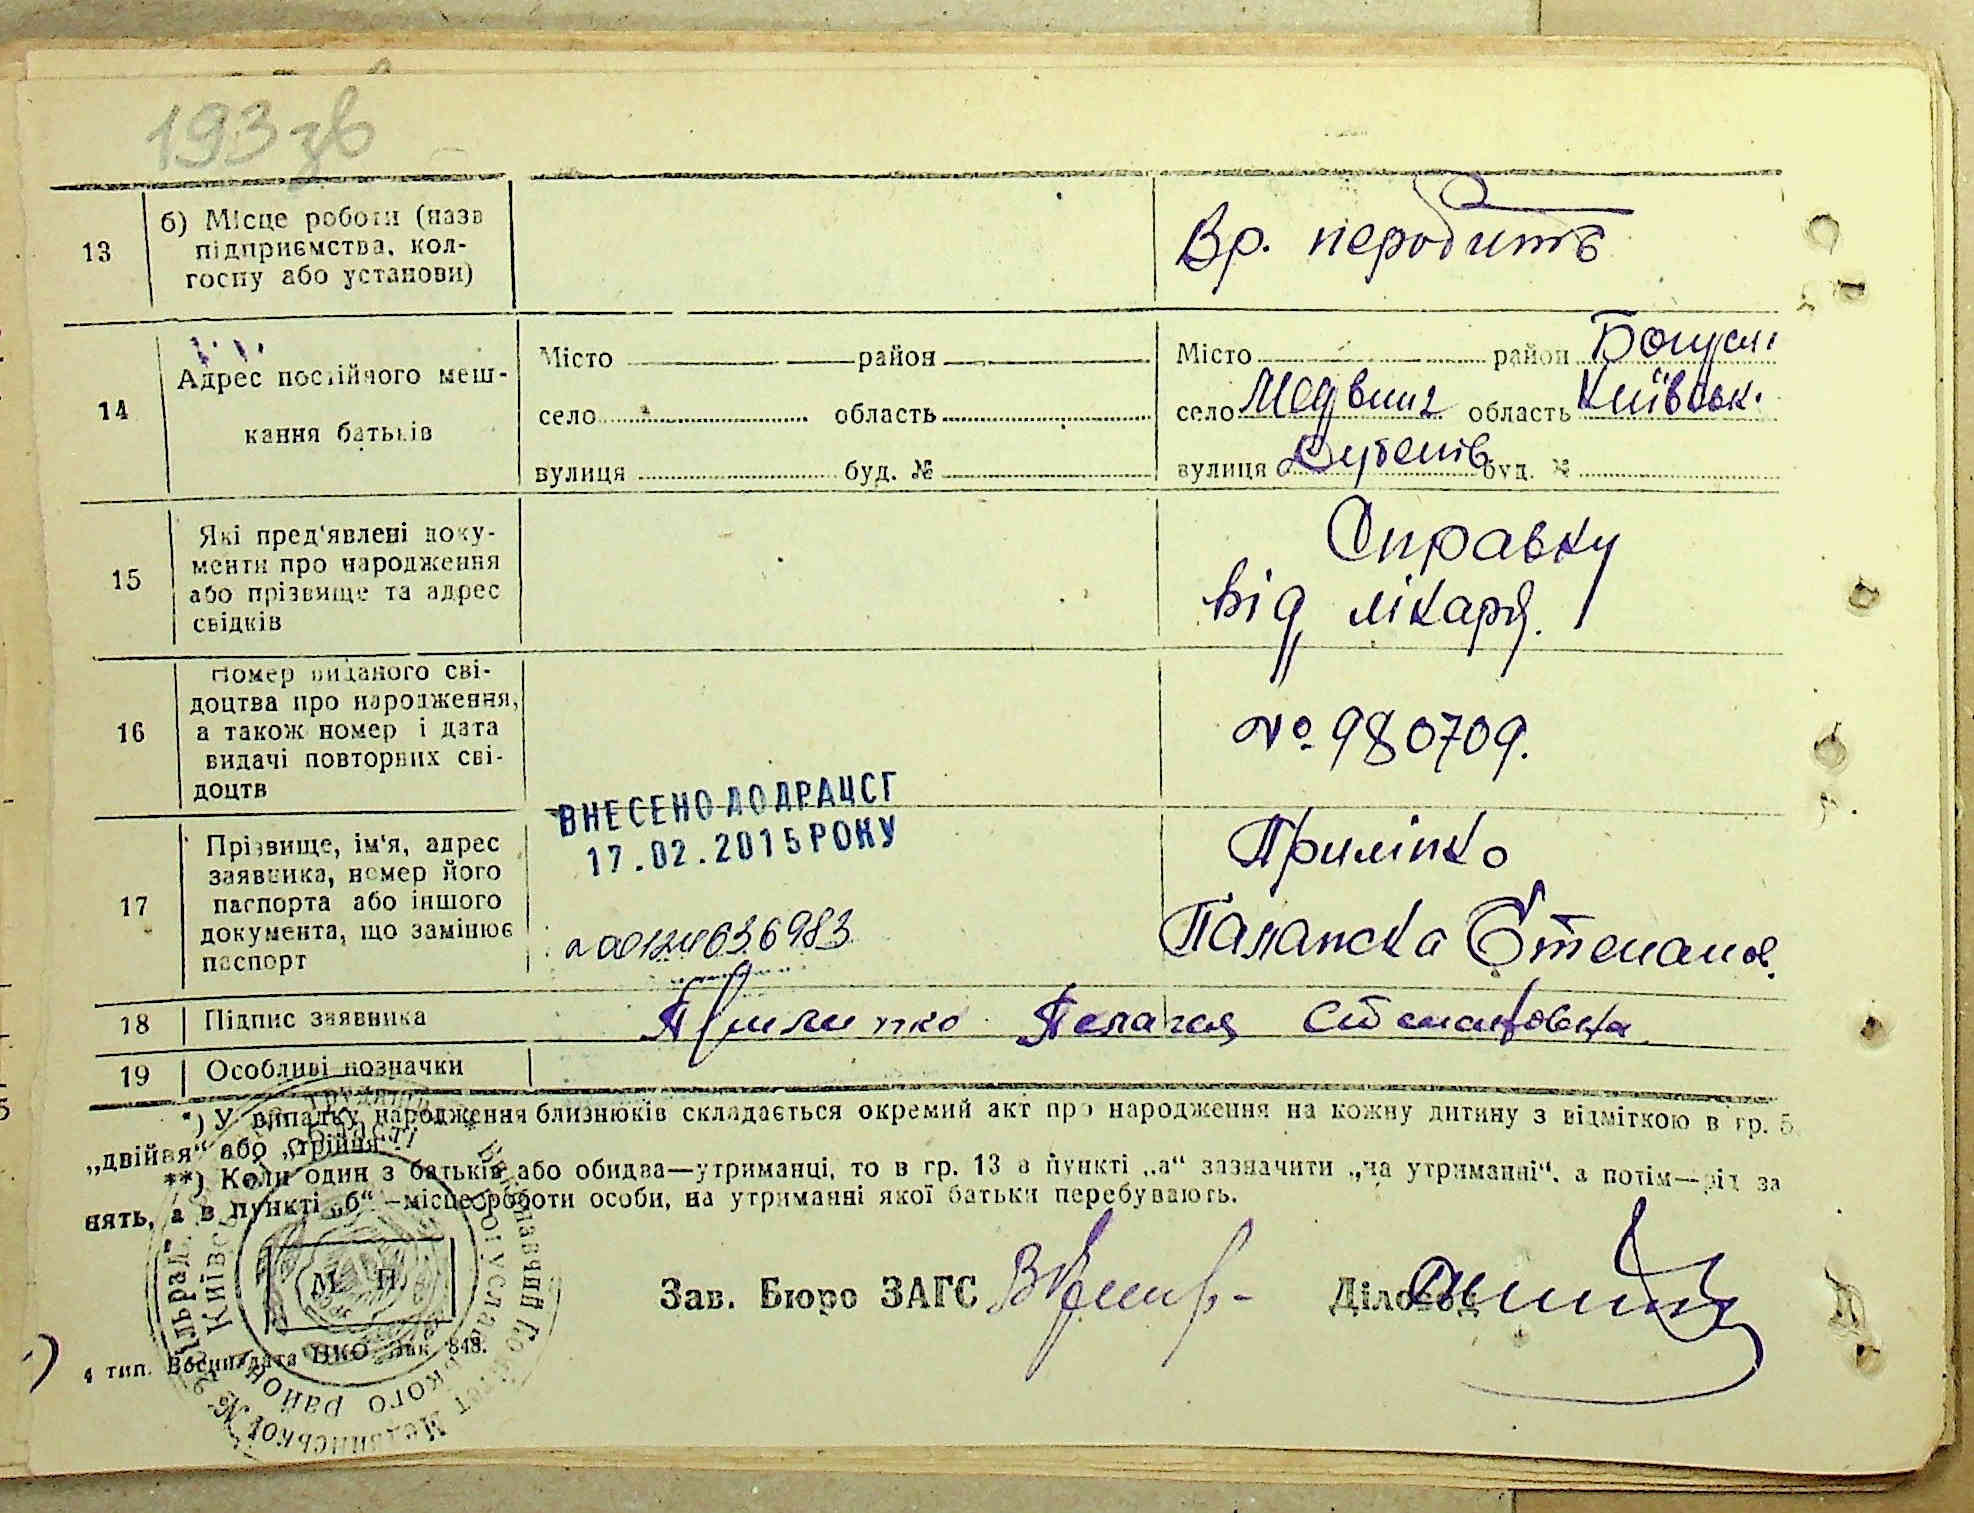 193 зв
13
б) Місце роботи (назв
підприємства, кол-
госпу або установи)
Вр. неробить
14
Адрес постійного меш-
кання батьків
Місто район
село область
вулиця буд. №
Місто район Богусл
село Медвин область Київськ.
вулиця буд. №
15
Які пред'явлені доку-
менти про народження
або прізвище та адрес
свідків
Справку
від лікаря.
16
Номер виданого сві-
доцтва про народження,
а також номер і дата
видачі повторних сві-
доцтв
№ 980709.
ВНЕСЕНО ДО ДРАЦСГ
17.02.2015 РОКУ
17
Прізвище, ім'я, адрес
заявника, номер його
паспорта або іншого
документа, що замінює
паспорт
Приліпко
Палажка Степанов.
18
Підпис заявника
Прилипко Пелагея Степановна
19
Особливі позначки
*) У випадку народження близнюків складається окремий акт про народження на кожну дитину з відміткою в гр. 5
„двійня“ або „трійня“.
**) Коли один з батьків або обидва—утриманці, то в гр. 13 в пункті „а“ зазначити „на утриманні“, а потім—рід за
нять, а в пункті „б“—місце роботи особи, на утриманні якої батьки перебувають.
М. П.
Зав. Бюро ЗАГС
Діловод
4 тип. Воениздата НКО. Зак. 848.